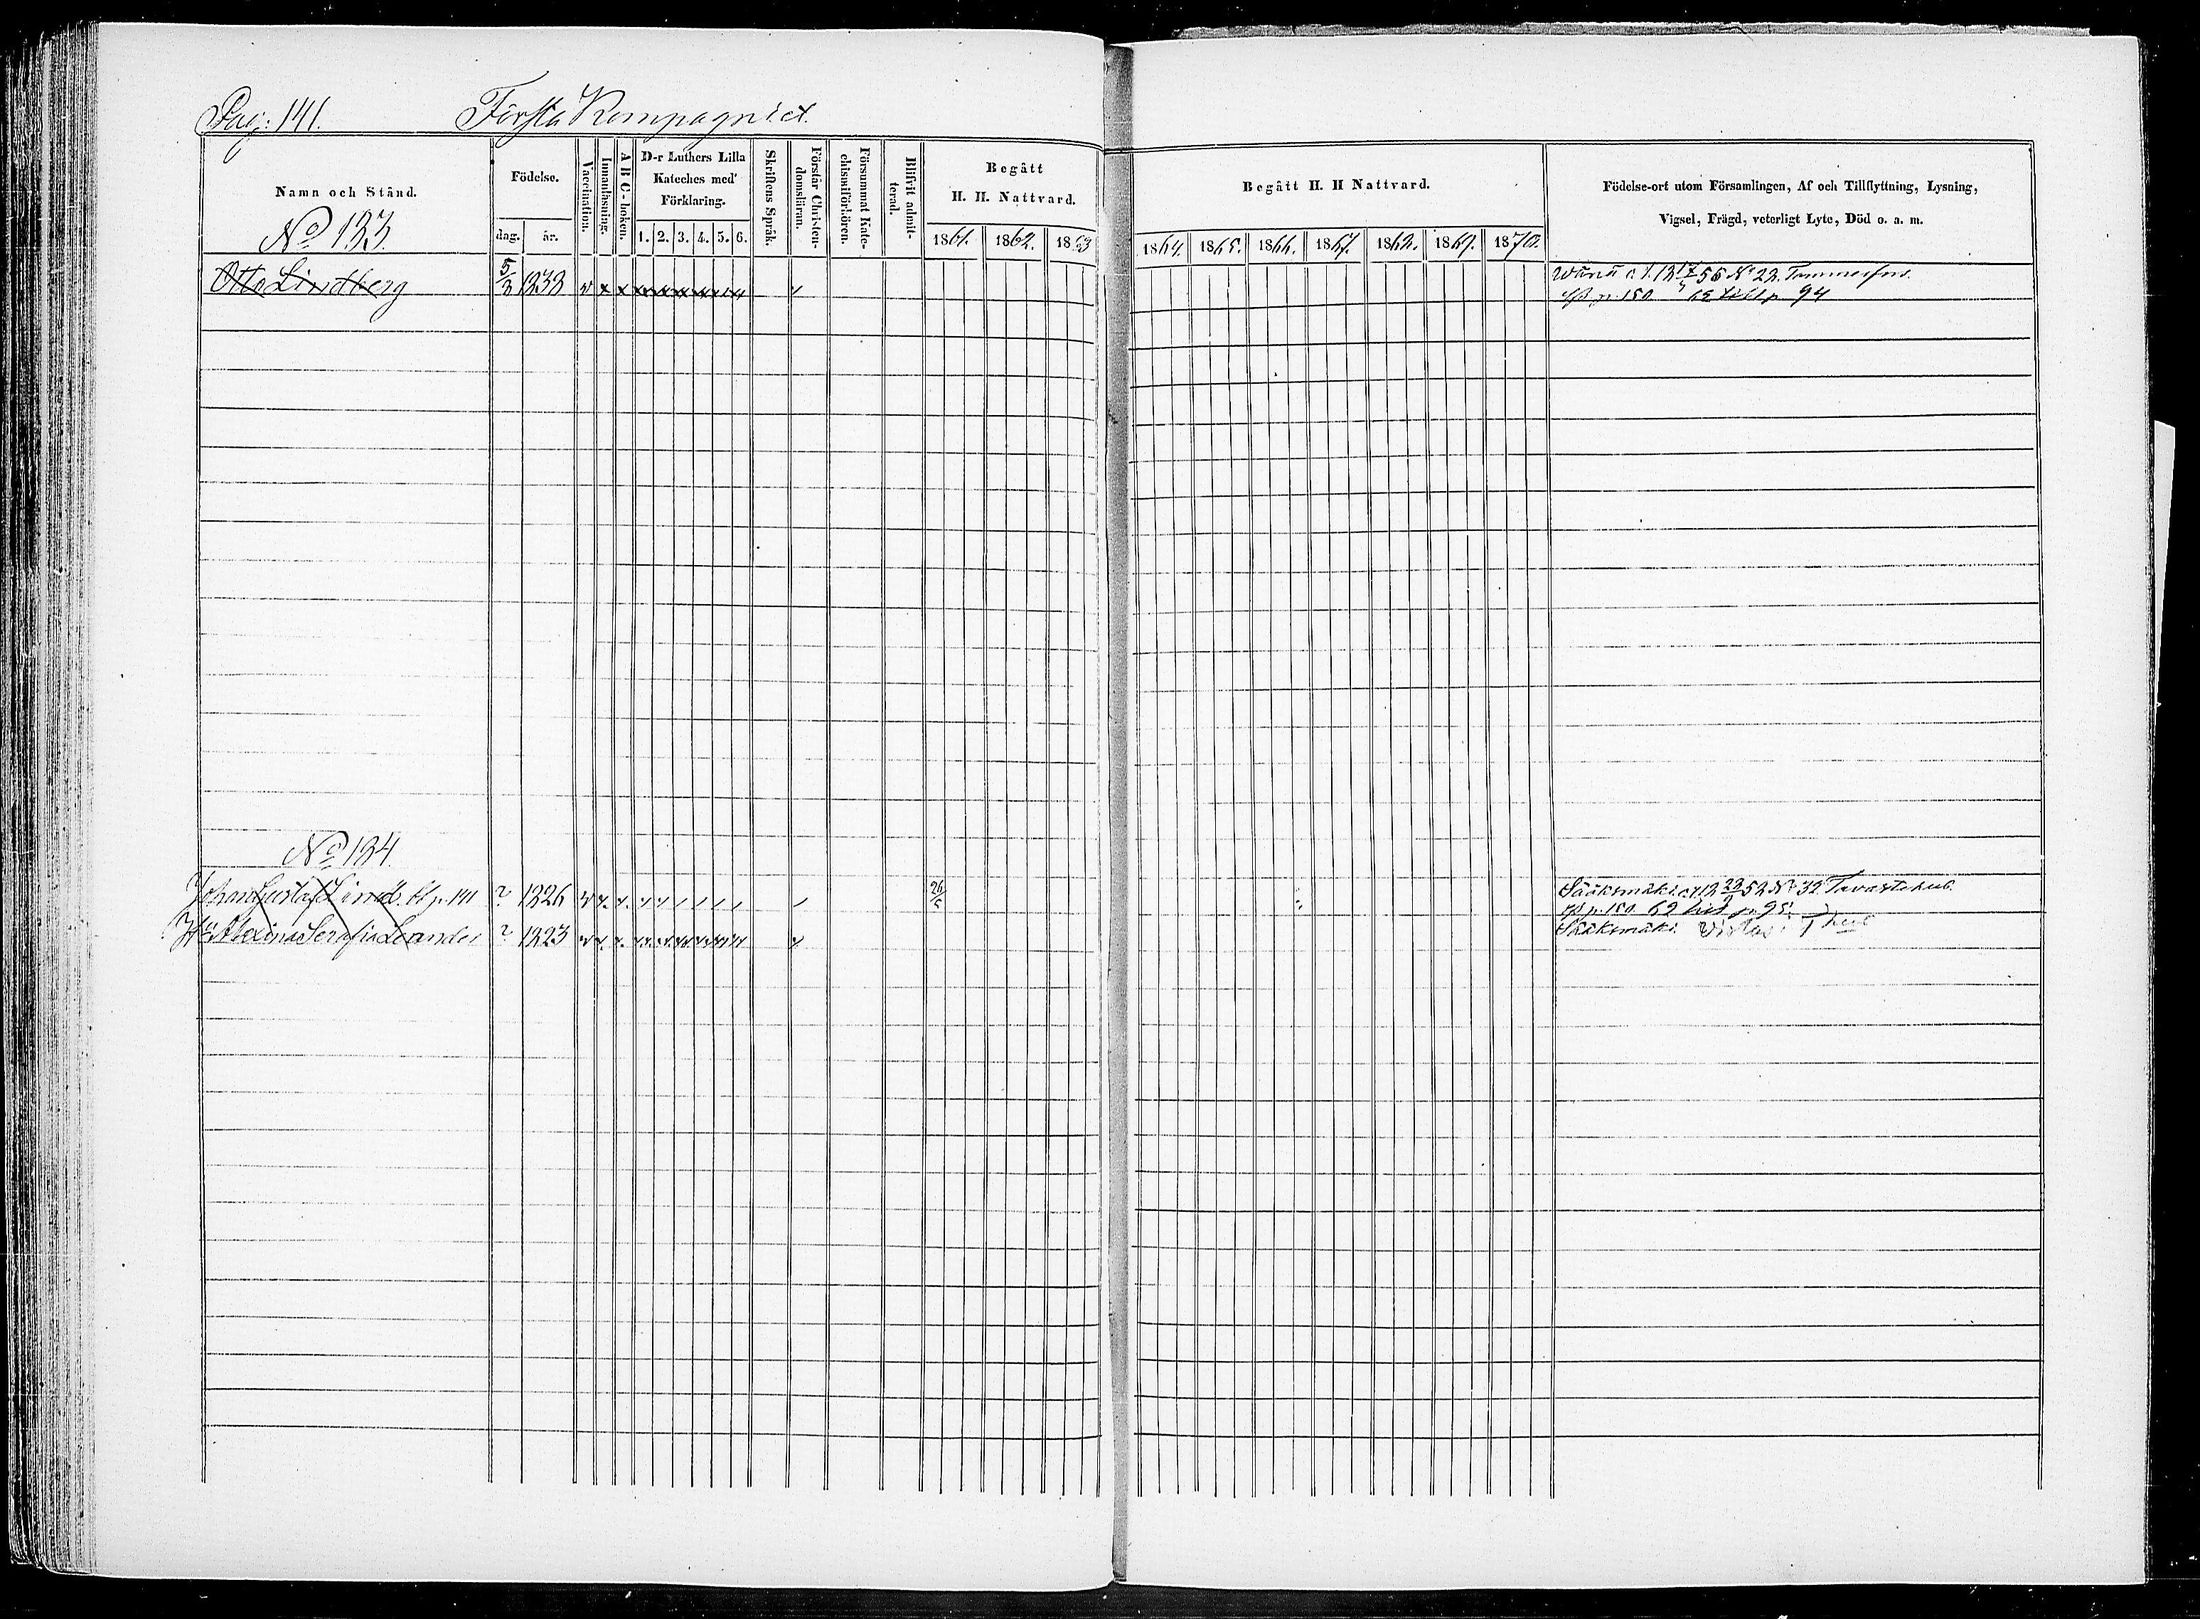 Pag: 141. Första Kompagniet.
Namn och Stånd.
Födelse.
dag. år.
Vaccination.
Innanläsning.
A B C-boken.
D-r Luthers Lilla
Kateches med
Förklaring.
1. 2. 3. 4. 5. 6.
Skriftens Språk.
Förstår Christen-
domsläran.
Försummat Kate-
chismiförhören.
Blifvit admit-
terad.
Begått
H. H. Nattvard.
1861. 1862. 1863
Begått H. H Nattvard.
1864. 1865. 1866. 1867. 1862. 1869. 1870.
Födelse-ort utom Församlingen, Af och Tillflyttning, Lysning,
Vigsel, Frägd, veterligt Lyte, Död o. a. m.
No 133.
Otto Lindberg 5/3 1838 v x x
56 No 22. Tammerfors.
p. 150 94
No 134.
Johan Gustaf Lind p. 141 ? 1826 26/5
Sääksmäki 52 No 32. Tavastehus.
p. 150 69 p. 95
Hu Alexina Serafia Leander ? 1823
Sääksmäki.